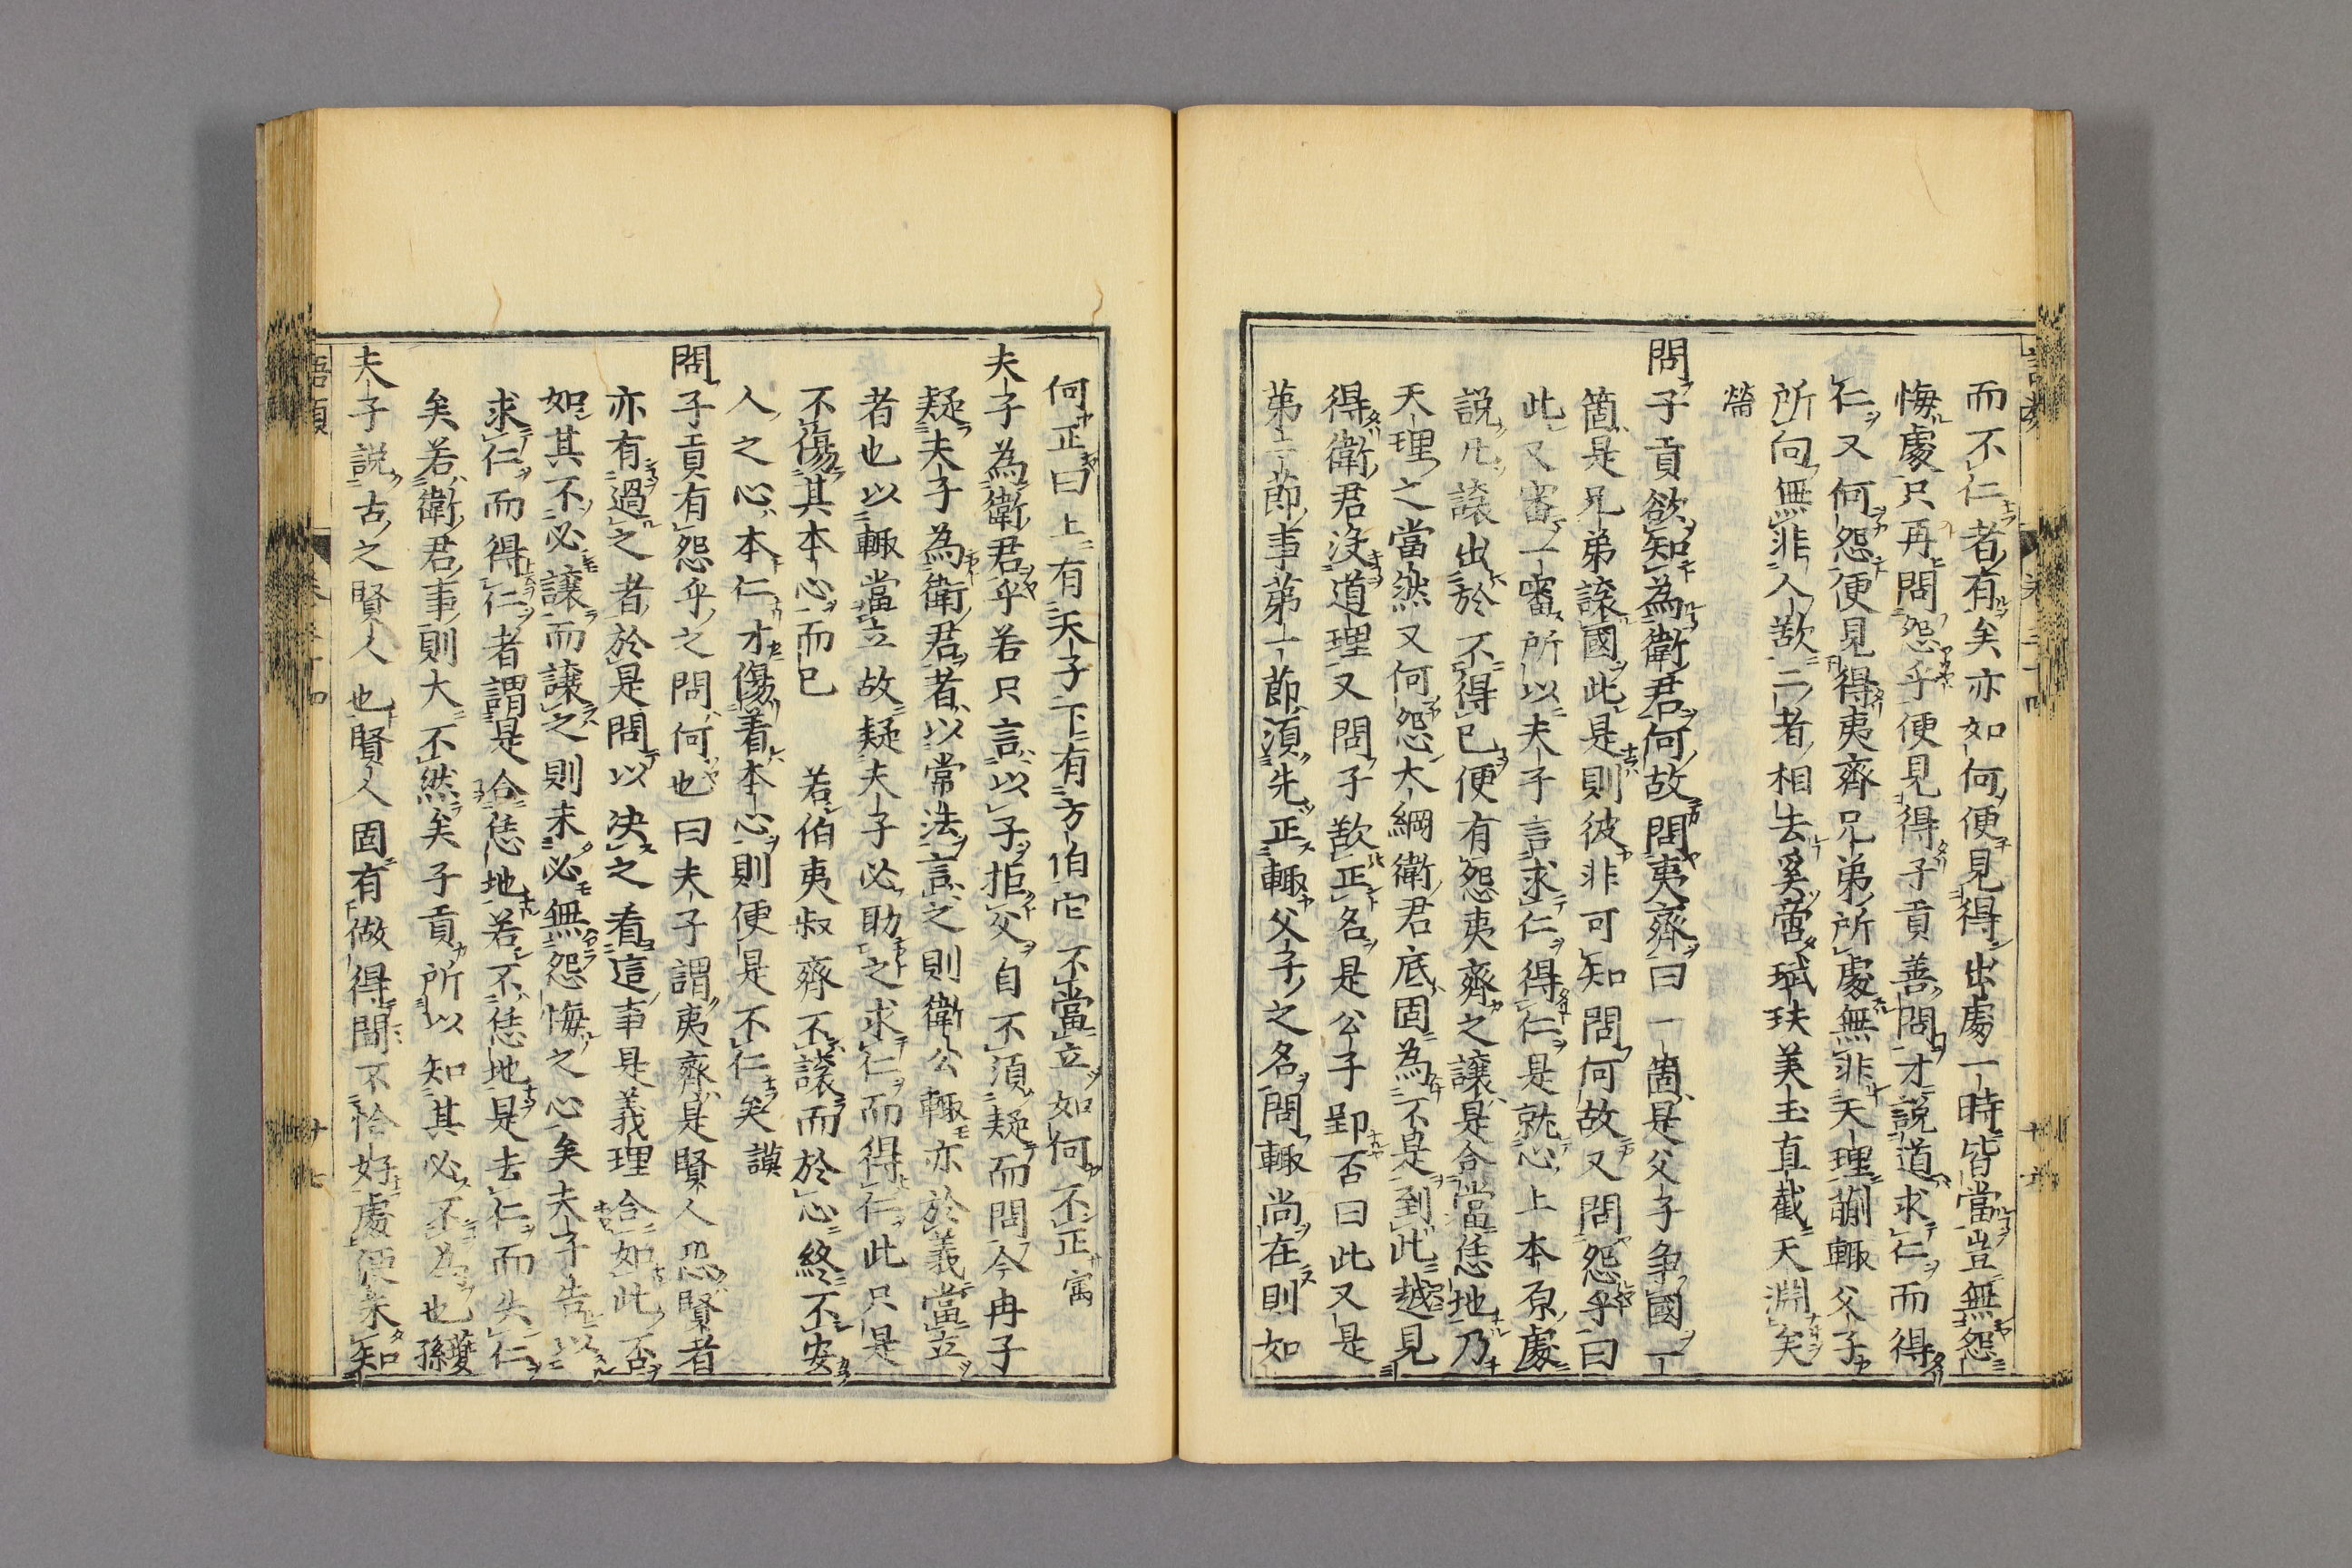 而不仁者有矣亦如何便見得出處一時皆當豈無怨
悔處只再問怨乎便見得子貢善問才說道求仁而得
仁又何怨便見得夷齊兄弟所處無非天理蒯輒父子
所向無非人欲二者相去奚啻珷玞美玉直截天淵矣
㽦
問子貢欲知為衛君何故問夷齊曰一箇是父子争國一
箇是兄弟讓國此是則彼非可知問何故又問怨乎曰
此又審一審所以夫子言求仁得仁是就心上本原處
說凡讓出於不得已便有怨夷齊之讓是合當恁地乃
天理之當然又何怨大綱衛君底固為不是到此越見
得衛君沒道理又問子欲正名是公子郢否曰此又是
第二節事第一節須先正輒父子之名問輒尚在則如
何正曰上有天子下有方伯它不當立如何不正㝢
夫子為衛君乎若只言以子拒父自不須疑而問今冉子
疑夫子為衛君者以常法言之則衛公輒亦於義當立
者也以輒當立故疑夫子必助之求仁而得仁此只是
不傷其本心而已 若伯夷叔齊不讓而於心終不安
人之心本仁才傷着本心則便是不仁矣謨
問子貢有怨乎之問何也曰夫子謂夷齊是賢人恐賢者
亦有過之者於是問以决之看這事是義理合如此否
如其不必讓而讓之則未必無怨悔之心矣夫子告以
求仁而得仁者謂是合恁地若不恁地是去仁而失仁
矣若衛君事則大不然矣子貢所以知其必不為也夔孫
夫子說古之賢人也賢人固有做得間不恰好處便未知
語類 卷三十四 十七